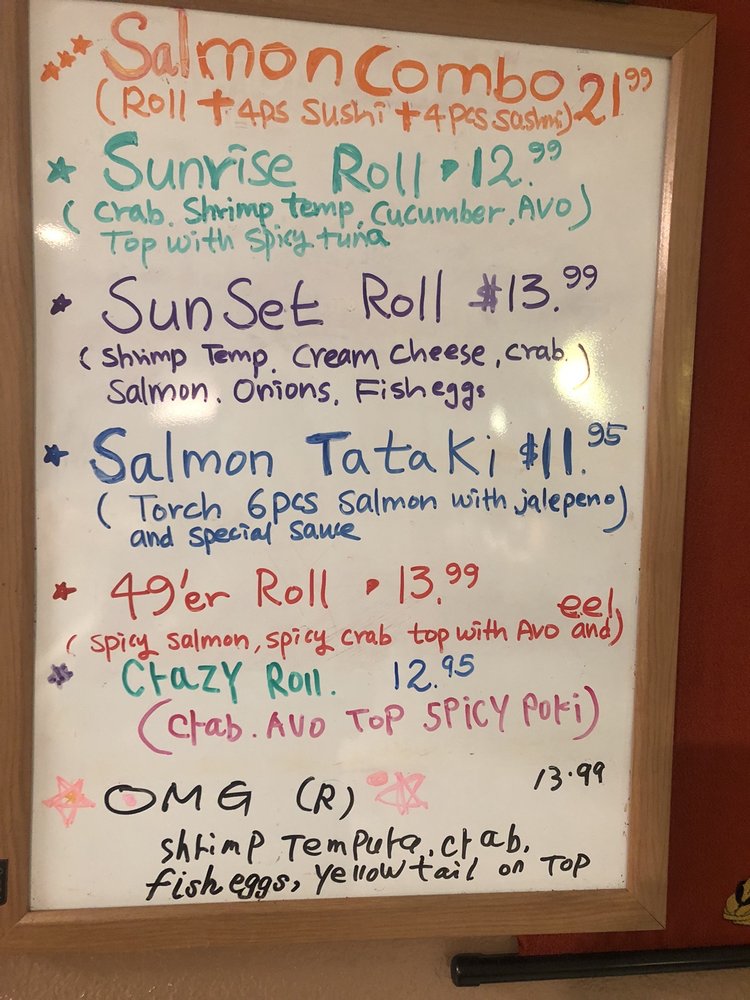 Salmon Combo 21.99
(Roll + 4ps Sushi + 4pcs sashmi)
Sunrise Roll 12.99
(crab. Shrimp temp, Cucumber, Avo)
Top with spicy tuna
SunSet Roll $13.99
(Shrimp Temp. Cream Cheese, crab.)
Salmon. Onions. Fish eggs
Salmon Tataki $11.95
(Torch 6pcs Salmon with jalepeno)
and special sauce
49'er Roll 13.99
(spicy salmon, spicy crab top with Avo and) eel
Crazy Roll. 12.95
(Crab. AVO TOP SPICY Poki)
OMG (R) 13.99
shrimp Tempura, crab,
fish eggs, yellow tail on TOP